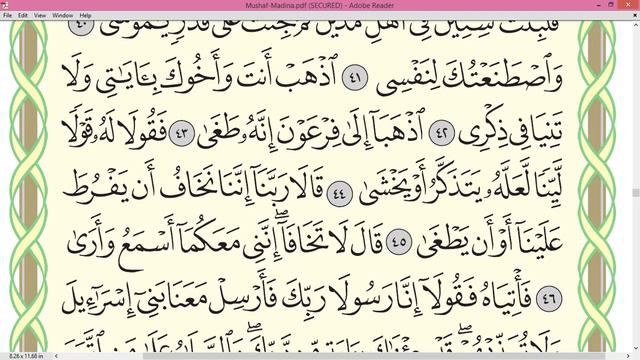 Mushaf-Madina.pdf (SECURED) - Adobe Reader
File Edit View Window Help
فَلَبِثْتَ سِنِينَ فِي أَهْلِ مَدْيَنَ ثُمَّ جِئْتَ عَلَىٰ قَدَرٍ يَٰمُوسَىٰ ٤٠
وَٱصْطَنَعْتُكَ لِنَفْسِي ٤١ ٱذْهَبْ أَنتَ وَأَخُوكَ بِـَٔايَٰتِي وَلَا
تَنِيَا فِي ذِكْرِي ٤٢ ٱذْهَبَآ إِلَىٰ فِرْعَوْنَ إِنَّهُۥ طَغَىٰ ٤٣ فَقُولَا لَهُۥ قَوْلًا
لَّيِّنًا لَّعَلَّهُۥ يَتَذَكَّرُ أَوْ يَخْشَىٰ ٤٤ قَالَا رَبَّنَآ إِنَّنَا نَخَافُ أَن يَفْرُطَ
عَلَيْنَآ أَوْ أَن يَطْغَىٰ ٤٥ قَالَ لَا تَخَافَآ ۖ إِنَّنِي مَعَكُمَآ أَسْمَعُ وَأَرَىٰ
٤٦ فَأْتِيَاهُ فَقُولَآ إِنَّا رَسُولَا رَبِّكَ فَأَرْسِلْ مَعَنَا بَنِيٓ إِسْرَٰٓءِيلَ
وَلَا تُعَذِّبْهُمْ ۖ قَدْ جِئْنَٰكَ بِـَٔايَةٍ مِّن رَّبِّكَ ۖ وَٱلسَّلَٰمُ عَلَىٰ مَنِ ٱتَّبَعَ
8.26 x 11.68 in